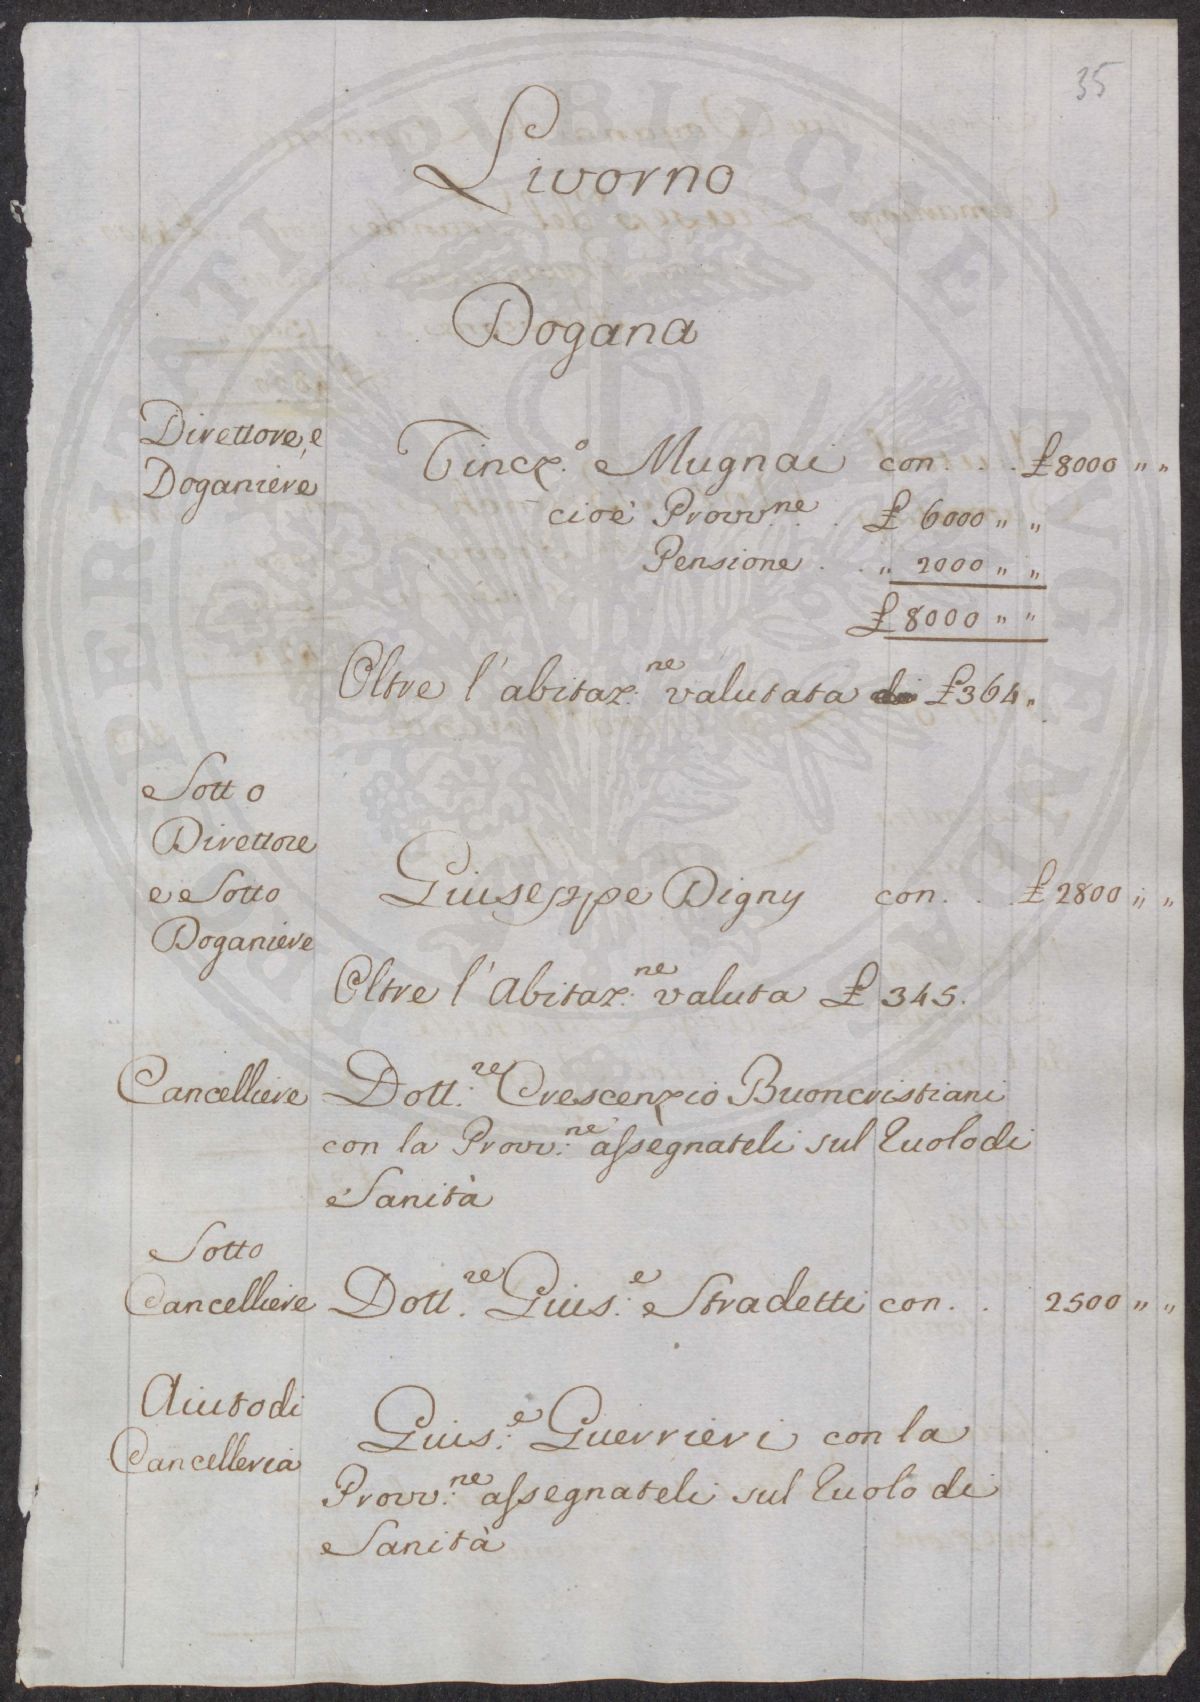 35
Livorno
Dogana
Direttore, e
Doganiere
Vinc.o Mugnai con . . . £ 8000 " "
cioè Provv.ne . . £ 6000 " "
Pensione . . " 2000 " "
£ 8000 " "
Oltre l'abitaz.ne valutata £ 364 "
Sotto
Direttore
e Sotto
Doganiere
Giuseppe Digny con . . . £ 2800 " "
Oltre l'Abitaz.ne valuta £ 345.
Cancelliere Dott.re Crescenzio Buoncristiani
con la Provv.ne assegnateli sul Ruolo di
Sanità
Sotto
Cancelliere Dott.re Gius.e Stradetti con . . 2500 " "
Aiuto di
Cancelleria
Gius.e Guerrieri con la
Provv.ne assegnateli sul Ruolo di
Sanità